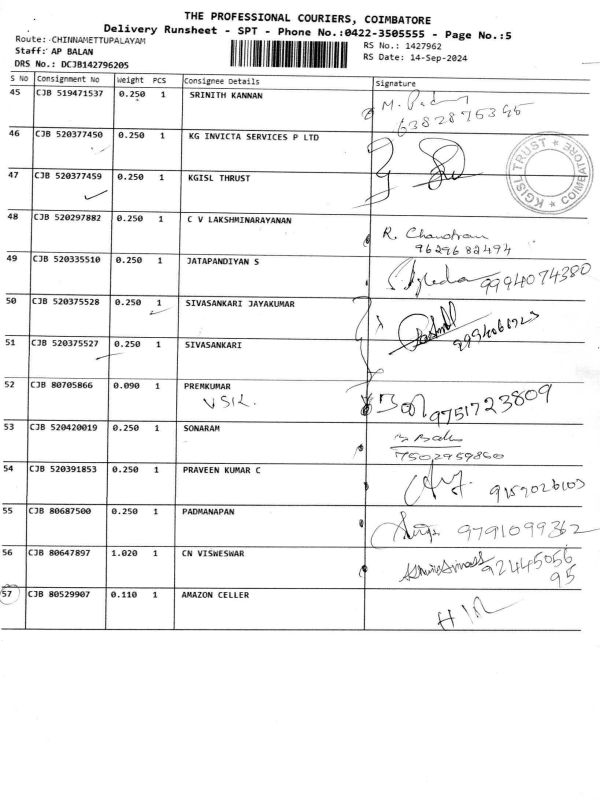 THE PROFESSIONAL COURIERS, COIMBATORE
Delivery Runsheet - SPT - Phone No.:0422-3505555 - Page No.:5
Route: CHINNAMETTUPALAYAM
RS No.: 1427962
Staff: AP BALAN
RS Date: 14-Sep-2024
DRS No.: DCJB142796205
S No Consignment No Weight PCS Consignee Details Signature
45 CJB 519471537 0.250 1 SRINITH KANNAN
46 CJB 520377450 0.250 1 KG INVICTA SERVICES P LTD
KGISL TRUST * COIMBATORE *
47 CJB 520377459 0.250 1 KGISL THRUST
48 CJB 520297882 0.250 1 C V LAKSHMINARAYANAN R. Chandran
9629682494
49 CJB 520335510 0.250 1 JATAPANDIYAN S 9994074380
50 CJB 520375528 0.250 1 SIVASANKARI JAYAKUMAR
51 CJB 520375527 0.250 1 SIVASANKARI
52 CJB 80705866 0.090 1 PREMKUMAR 9751723809
VSIL.
53 CJB 520420019 0.250 1 SONARAM
7502959860
54 CJB 520391853 0.250 1 PRAVEEN KUMAR C
55 CJB 80687500 0.250 1 PADMANAPAN 9791099362
56 CJB 80647897 1.020 1 CN VISWESWAR 92445056
95
57 CJB 80529907 0.110 1 AMAZON CELLER